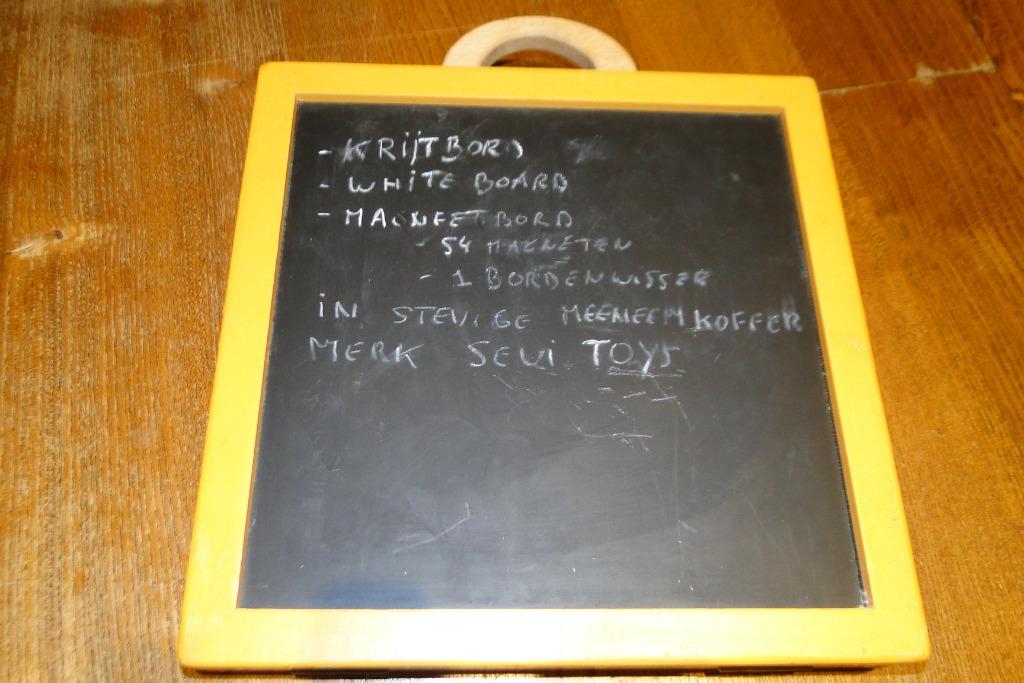 - KRIJTBORD
- WHITE BOARD
- MAGNEETBORD
- 54 MAGNETEN
- 1 BORDENWISSER
IN STEVIGE MEENEEM KOFFER
MERK SEVI TOYS